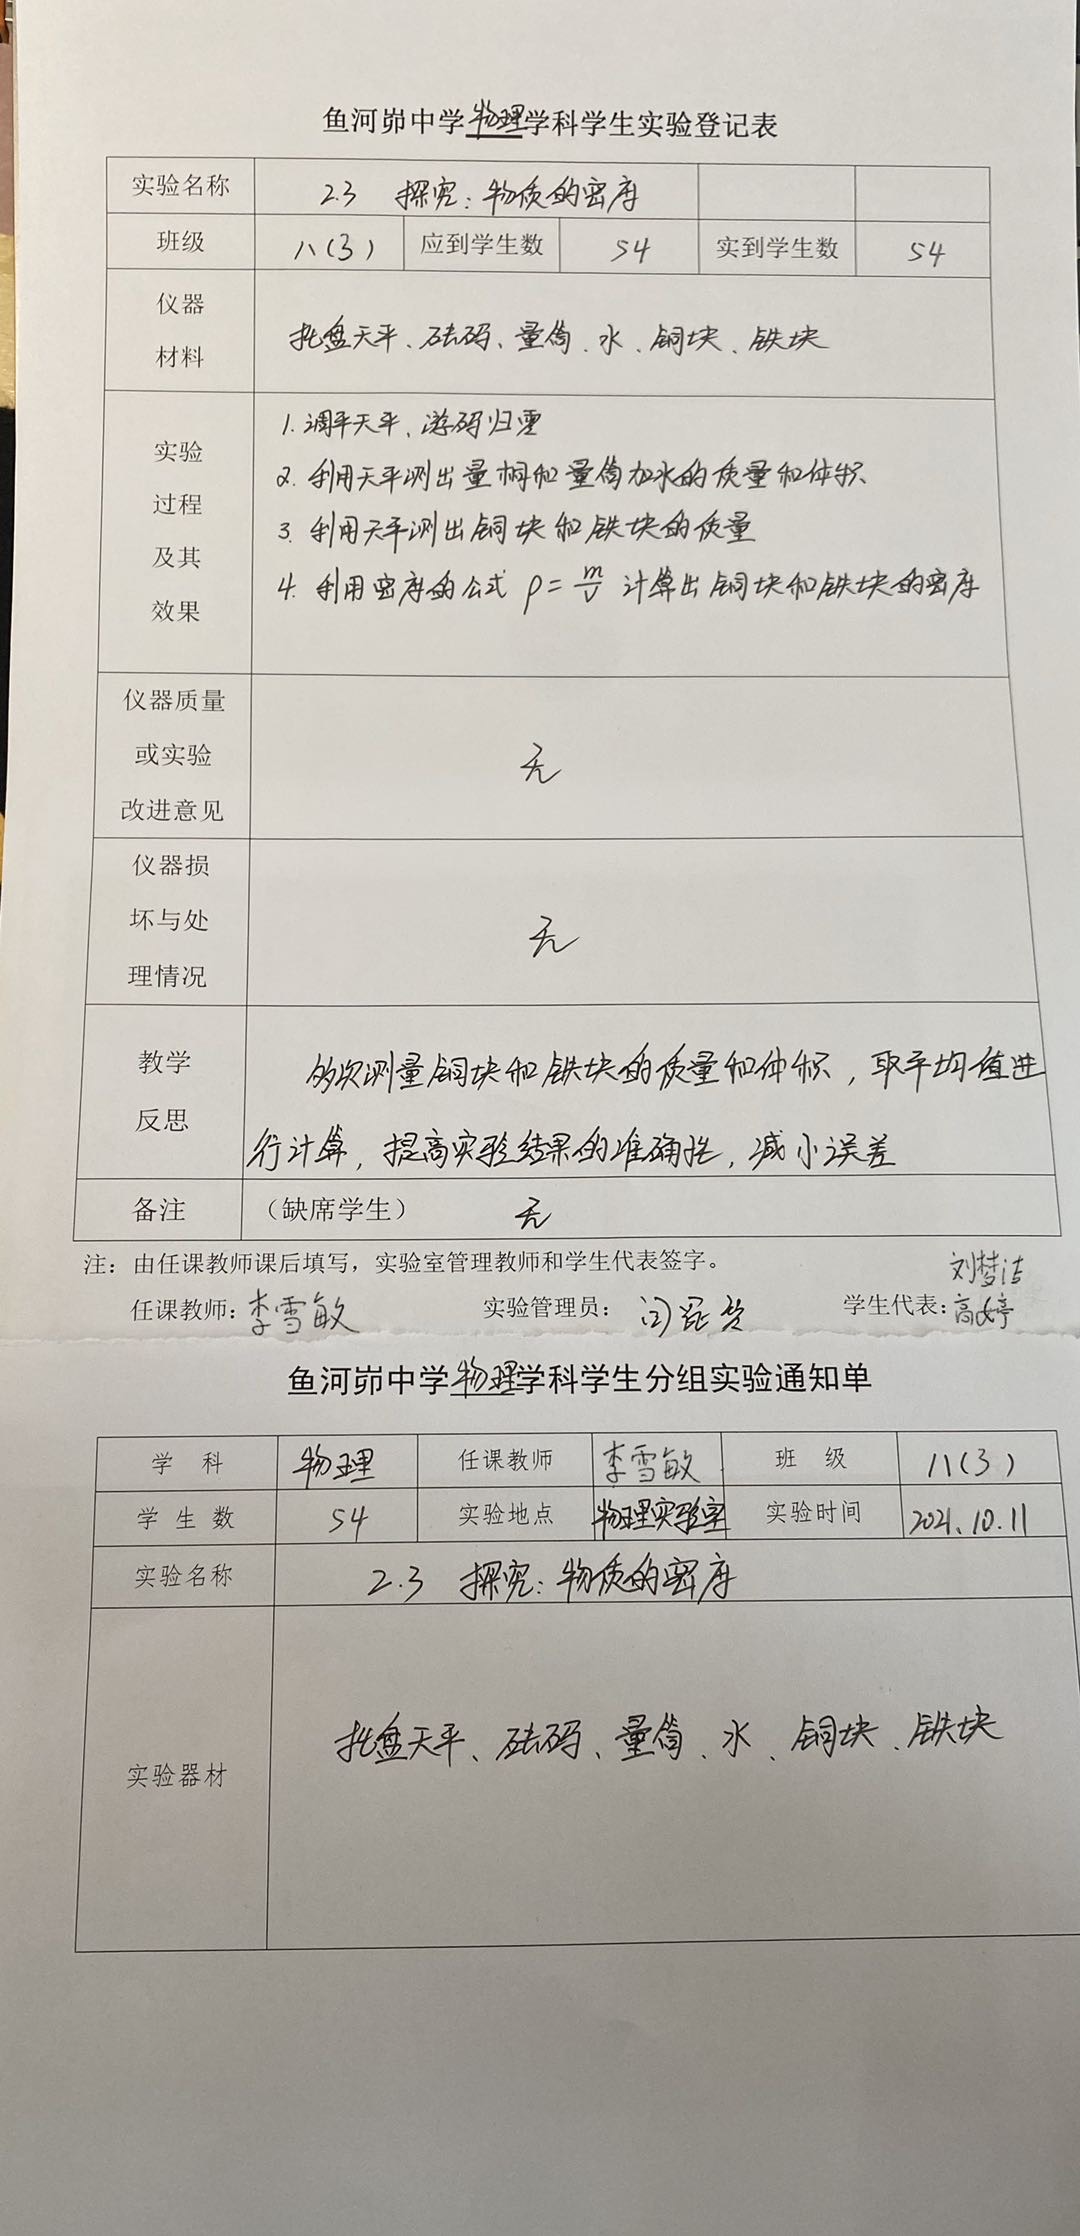 鱼河峁中学物理学科学生实验登记表
实验名称 2.3 探究：物质的密度
班级 八(3) 应到学生数 54 实到学生数 54
仪器
材料
托盘天平、砝码、量筒、水、铜块、铁块
实验
过程
及其
效果
1.调平天平、游码归零
2.利用天平测出量桐和量筒加水的质量和体积
3.利用天平测出铜块和铁块的质量
4.利用密度的公式 ρ=m/v 计算出铜块和铁块的密度
仪器质量
或实验
改进意见
无
仪器损
坏与处
理情况
无
教学
反思
多次测量铜块和铁块的质量和体积，取平均值进
行计算，提高实验结果的准确性，减小误差
备注 （缺席学生） 无
注：由任课教师课后填写，实验室管理教师和学生代表签字。
刘梦洁
任课教师：李雪敏 实验管理员： 学生代表：高婷
鱼河峁中学物理学科学生分组实验通知单
学 科 物理 任课教师 李雪敏 班 级 八(3)
学 生 数 54 实验地点 物理实验室 实验时间 2021.10.11
实验名称 2.3 探究：物质的密度
实验器材 托盘天平、砝码、量筒、水、铜块、铁块